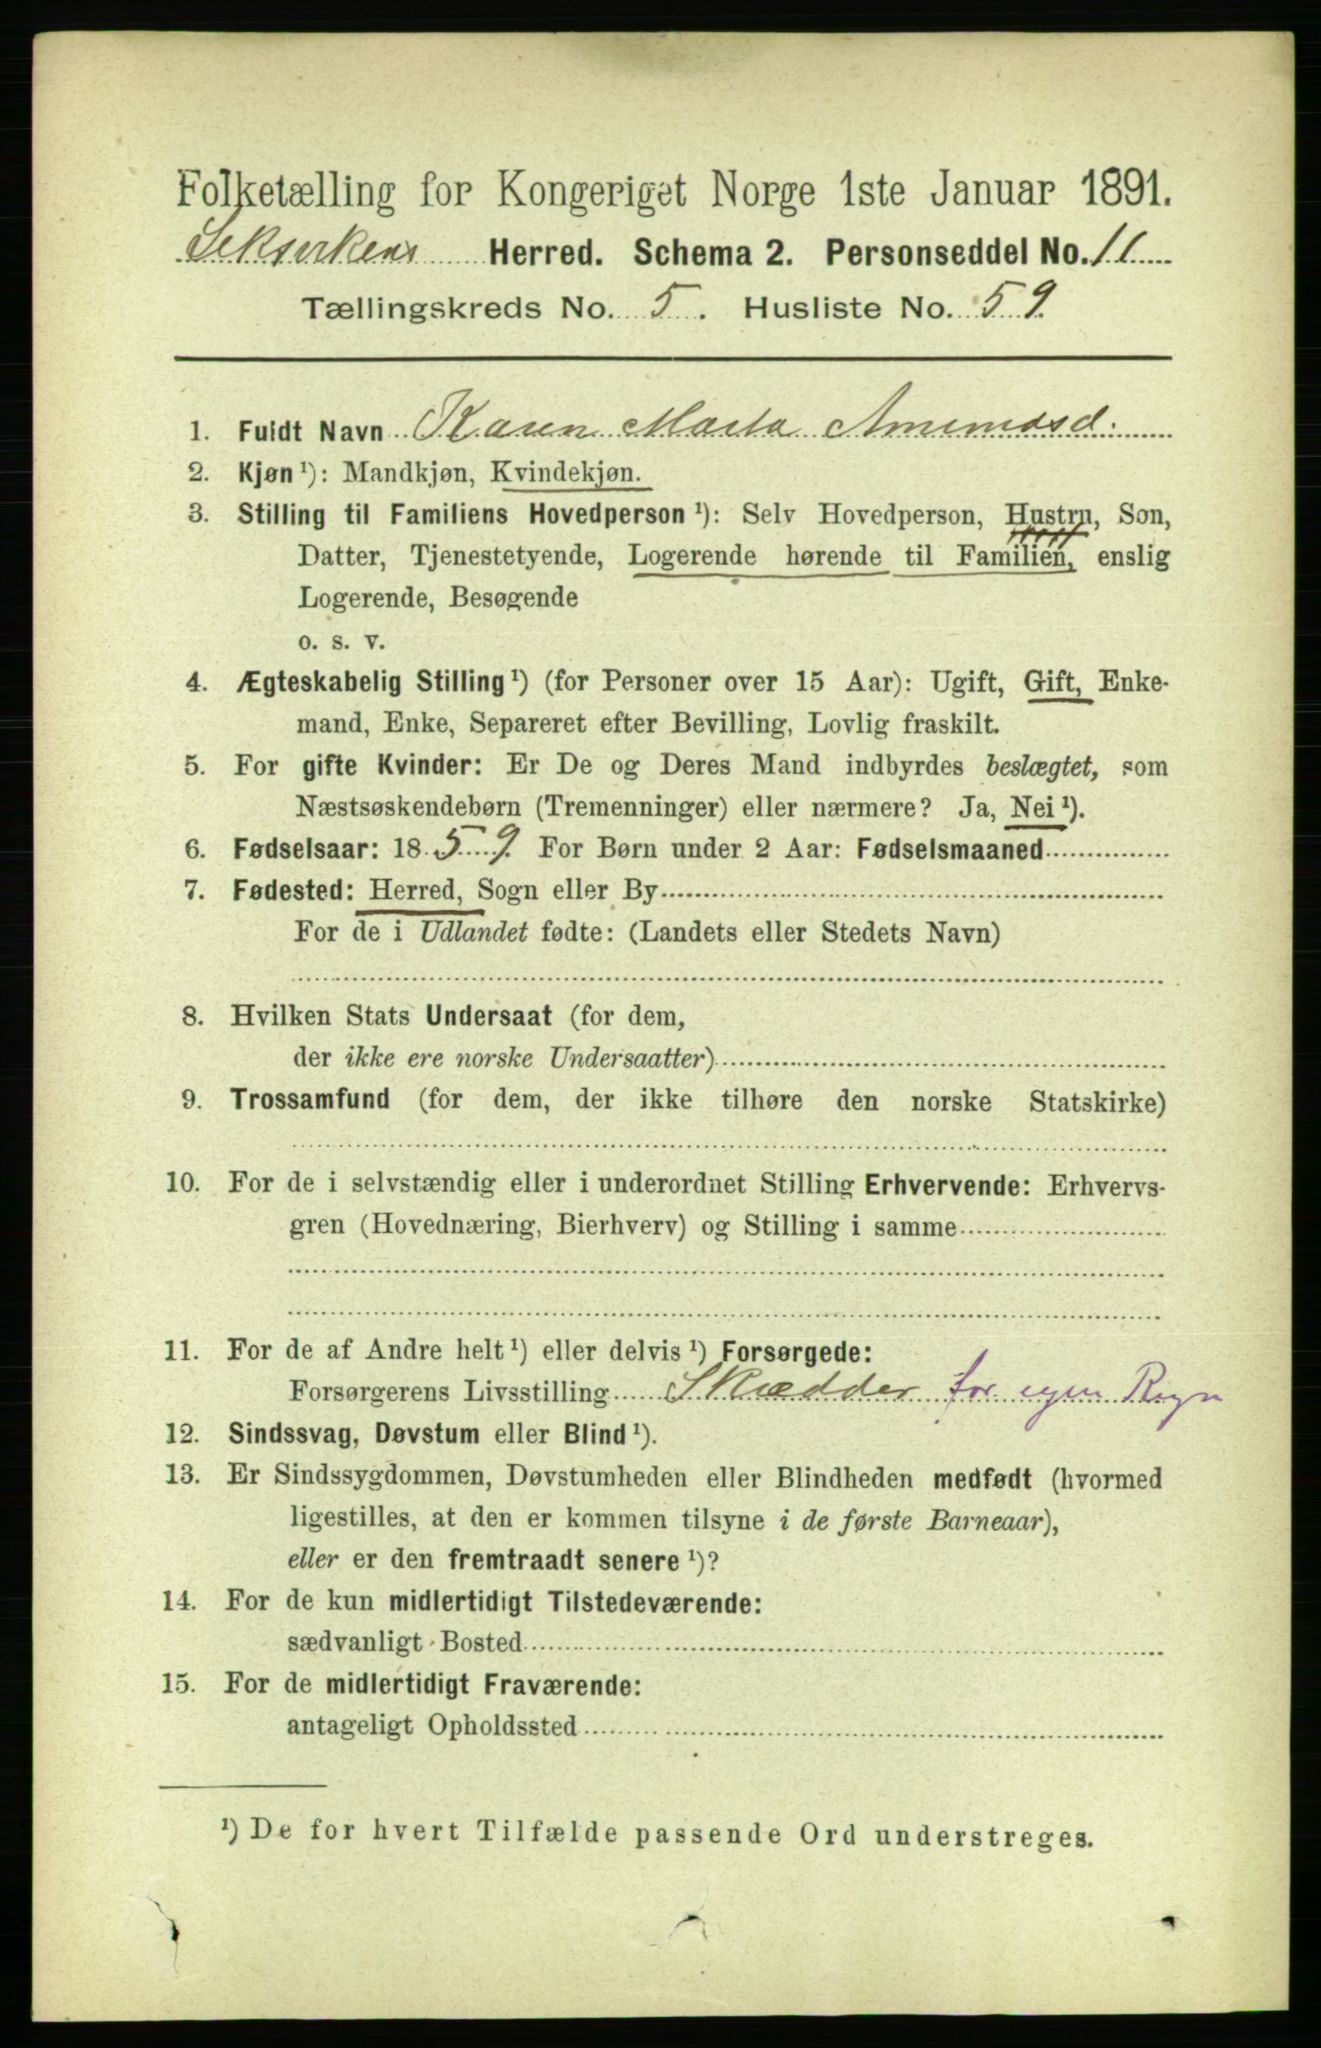 Folketælling for Kongeriget Norge 1ste Januar 1891.
Herred. Schema 2. Personseddel No. 11
Tællingskreds No. 5. Husliste No. 59
1. Fuldt Navn Karen Marta
2. Kjøn ¹): Mandkjøn, Kvindekjøn.
3. Stilling til Familiens Hovedperson ¹): Selv Hovedperson, Hustru, Søn,
Datter, Tjenestetyende, Logerende hørende til Familien, enslig
Logerende, Besøgende
o. s. v.
4. Ægteskabelig Stilling ¹) (for Personer over 15 Aar): Ugift, Gift, Enke-
mand, Enke, Separeret efter Bevilling, Lovlig fraskilt.
5. For gifte Kvinder: Er De og Deres Mand indbyrdes beslægtet, som
Næstsøskendebørn (Tremenninger) eller nærmere? Ja, Nei ¹).
6. Fødselsaar: 1859. For Børn under 2 Aar: Fødselsmaaned
7. Fødested: Herred, Sogn eller By
For de i Udlandet fødte: (Landets eller Stedets Navn)
8. Hvilken Stats Undersaat (for dem,
der ikke ere norske Undersaatter)
9. Trossamfund (for dem, der ikke tilhøre den norske Statskirke)
10. For de i selvstændig eller i underordnet Stilling Erhvervende: Erhvervs-
gren (Hovednæring, Bierhverv) og Stilling i samme
11. For de af Andre helt ¹) eller delvis ¹) Forsørgede:
Forsørgerens Livsstilling Skrædder for egen Regn
12. Sindssvag, Døvstum eller Blind ¹).
13. Er Sindssygdommen, Døvstumheden eller Blindheden medfødt (hvormed
ligestilles, at den er kommen tilsyne i de første Barneaar),
eller er den fremtraadt senere ¹)?
14. For de kun midlertidigt Tilstedeværende:
sædvanligt Bosted
15. For de midlertidigt Fraværende:
antageligt Opholdssted
¹) De for hvert Tilfælde passende Ord understreges.